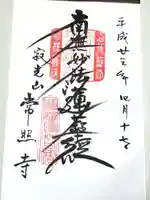 平成廿三年四月十七日
南無妙法蓮華経
寂光山
常照寺